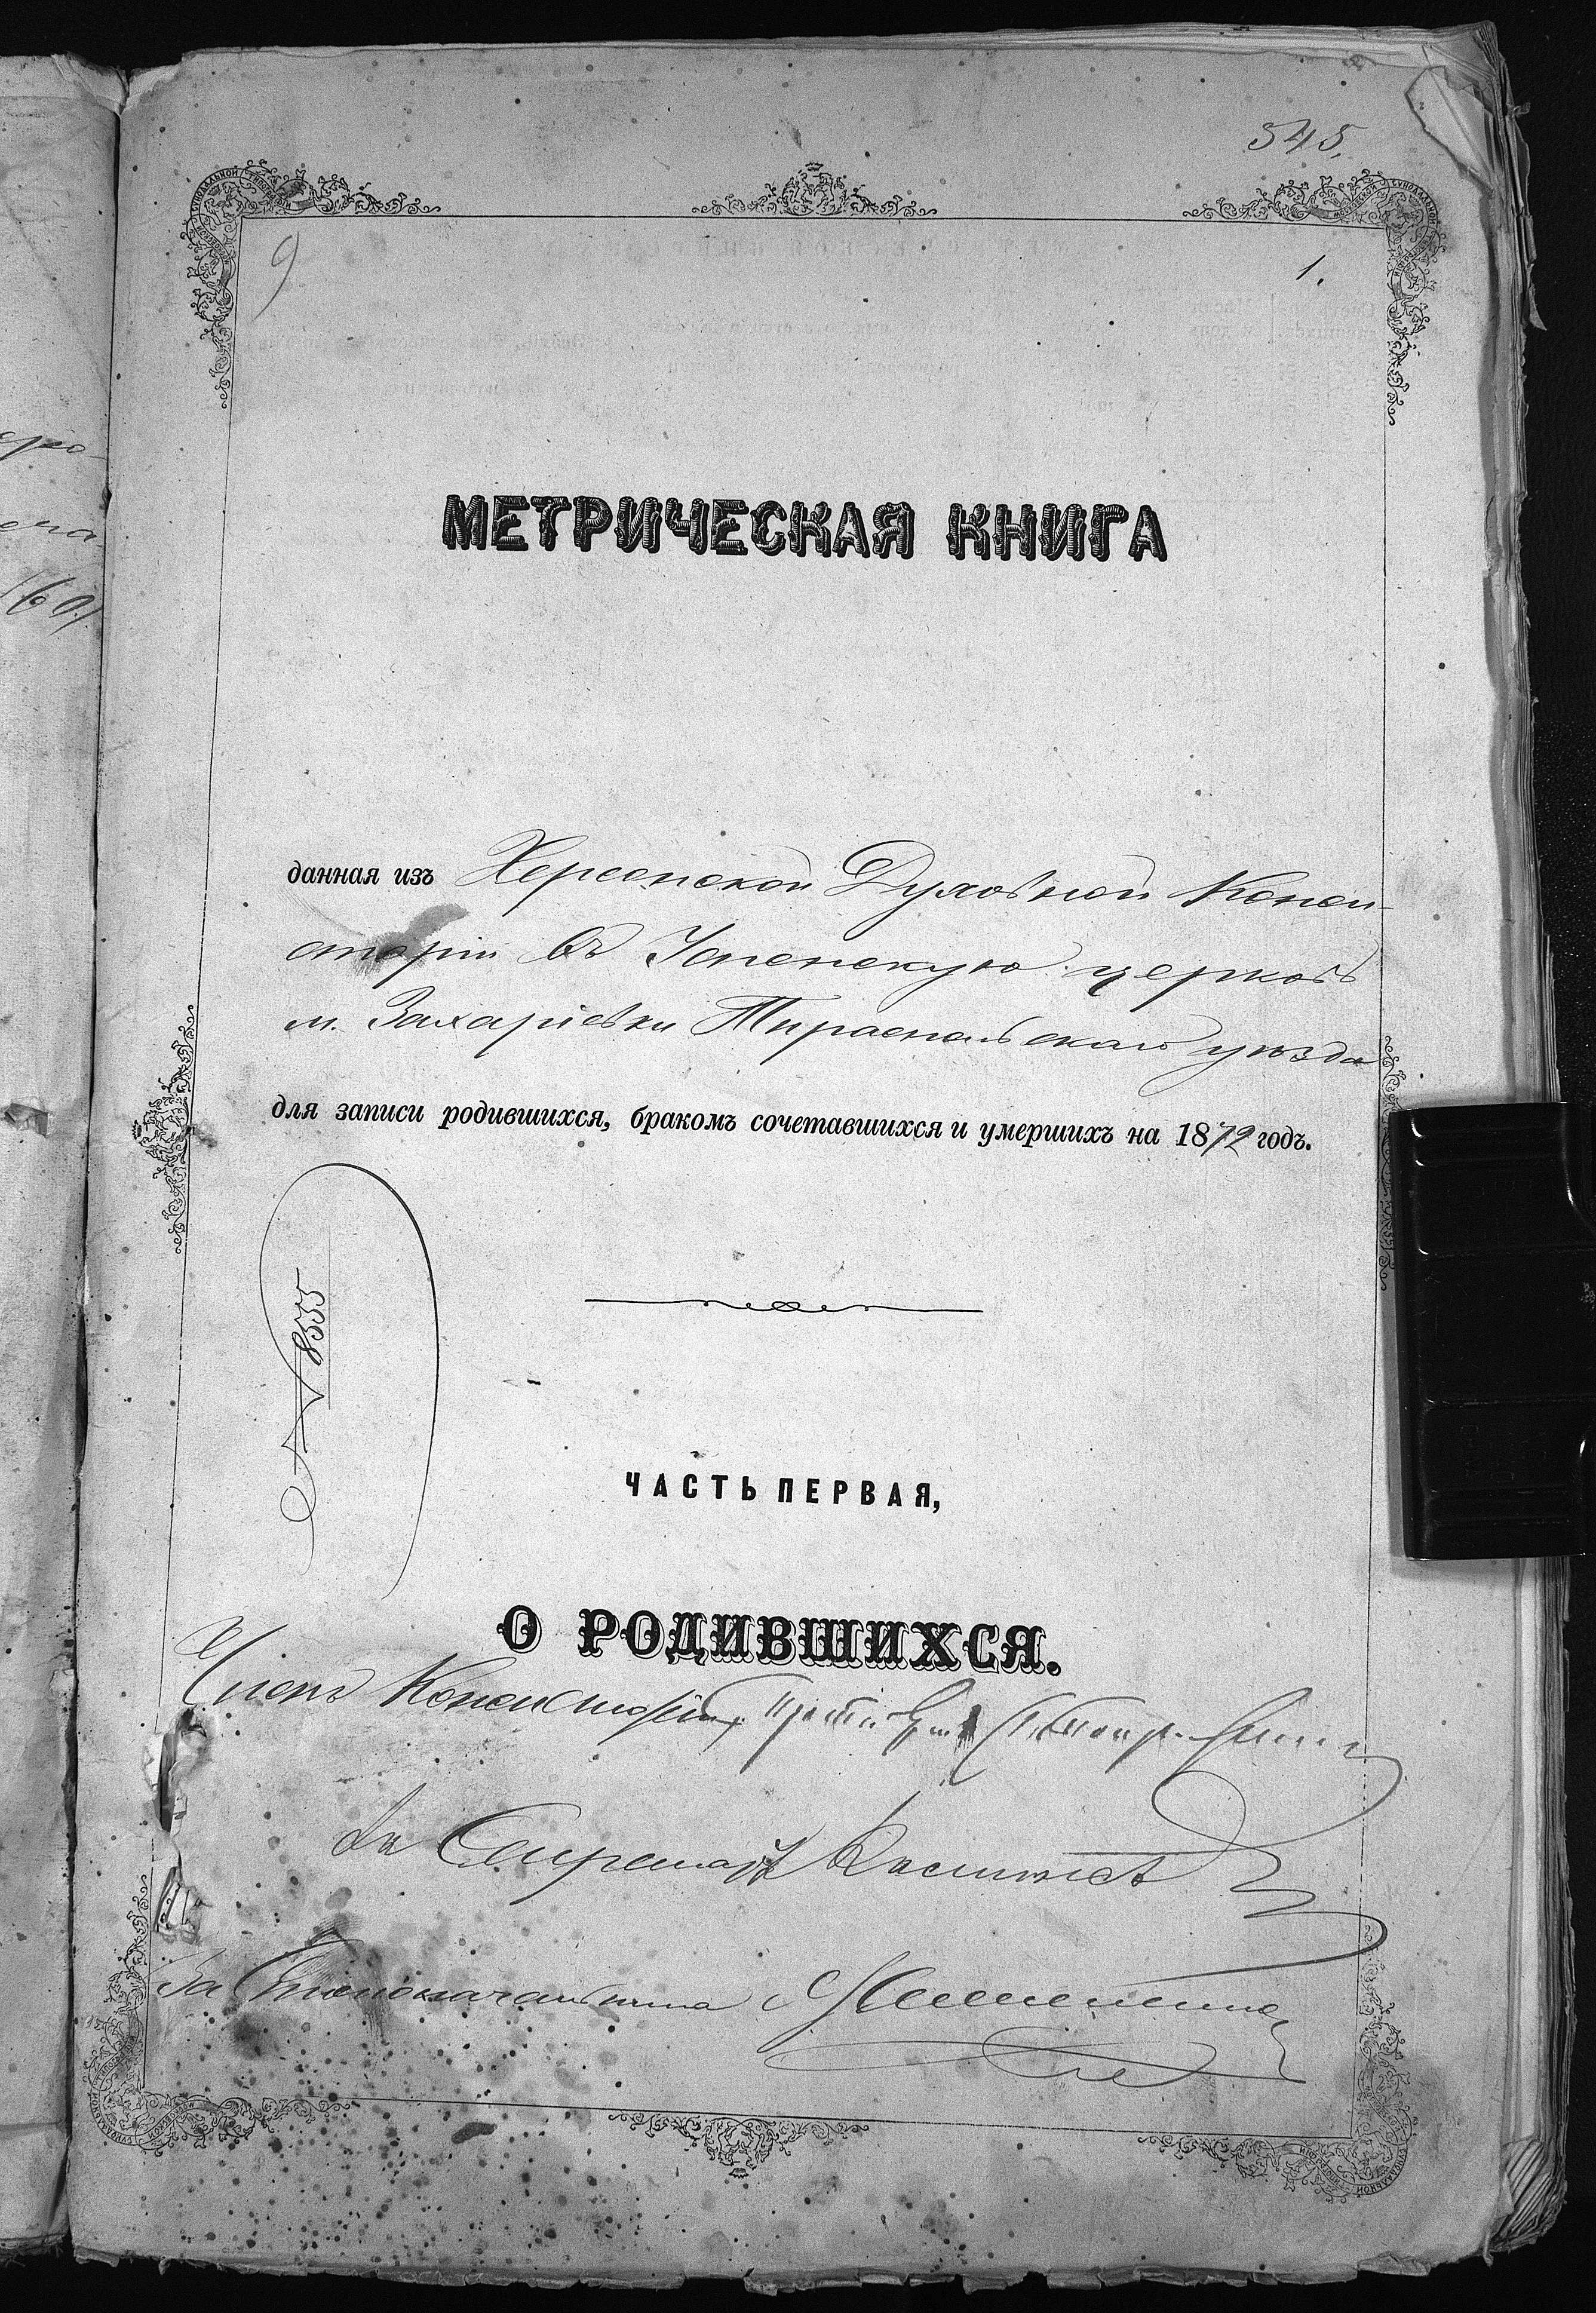 545.
9
1.
МЕТРИЧЕСКАЯ КНИГА
данная изъ Херсонской Духовной Конси-
сторіи въ Успенскую церковь
м. Захаріевки Тираспольскаго уѣзда
для записи родившихся, бракомъ сочетавшихся и умершихъ на 1872 годъ.
№ 8555
ЧАСТЬ ПЕРВАЯ,
О РОДИВШИХСЯ.
Членъ Консисторіи,
За Секретаря
За Столоначальника